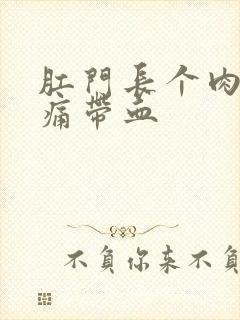 肛門長个肉
痛帶血
不負你来不負